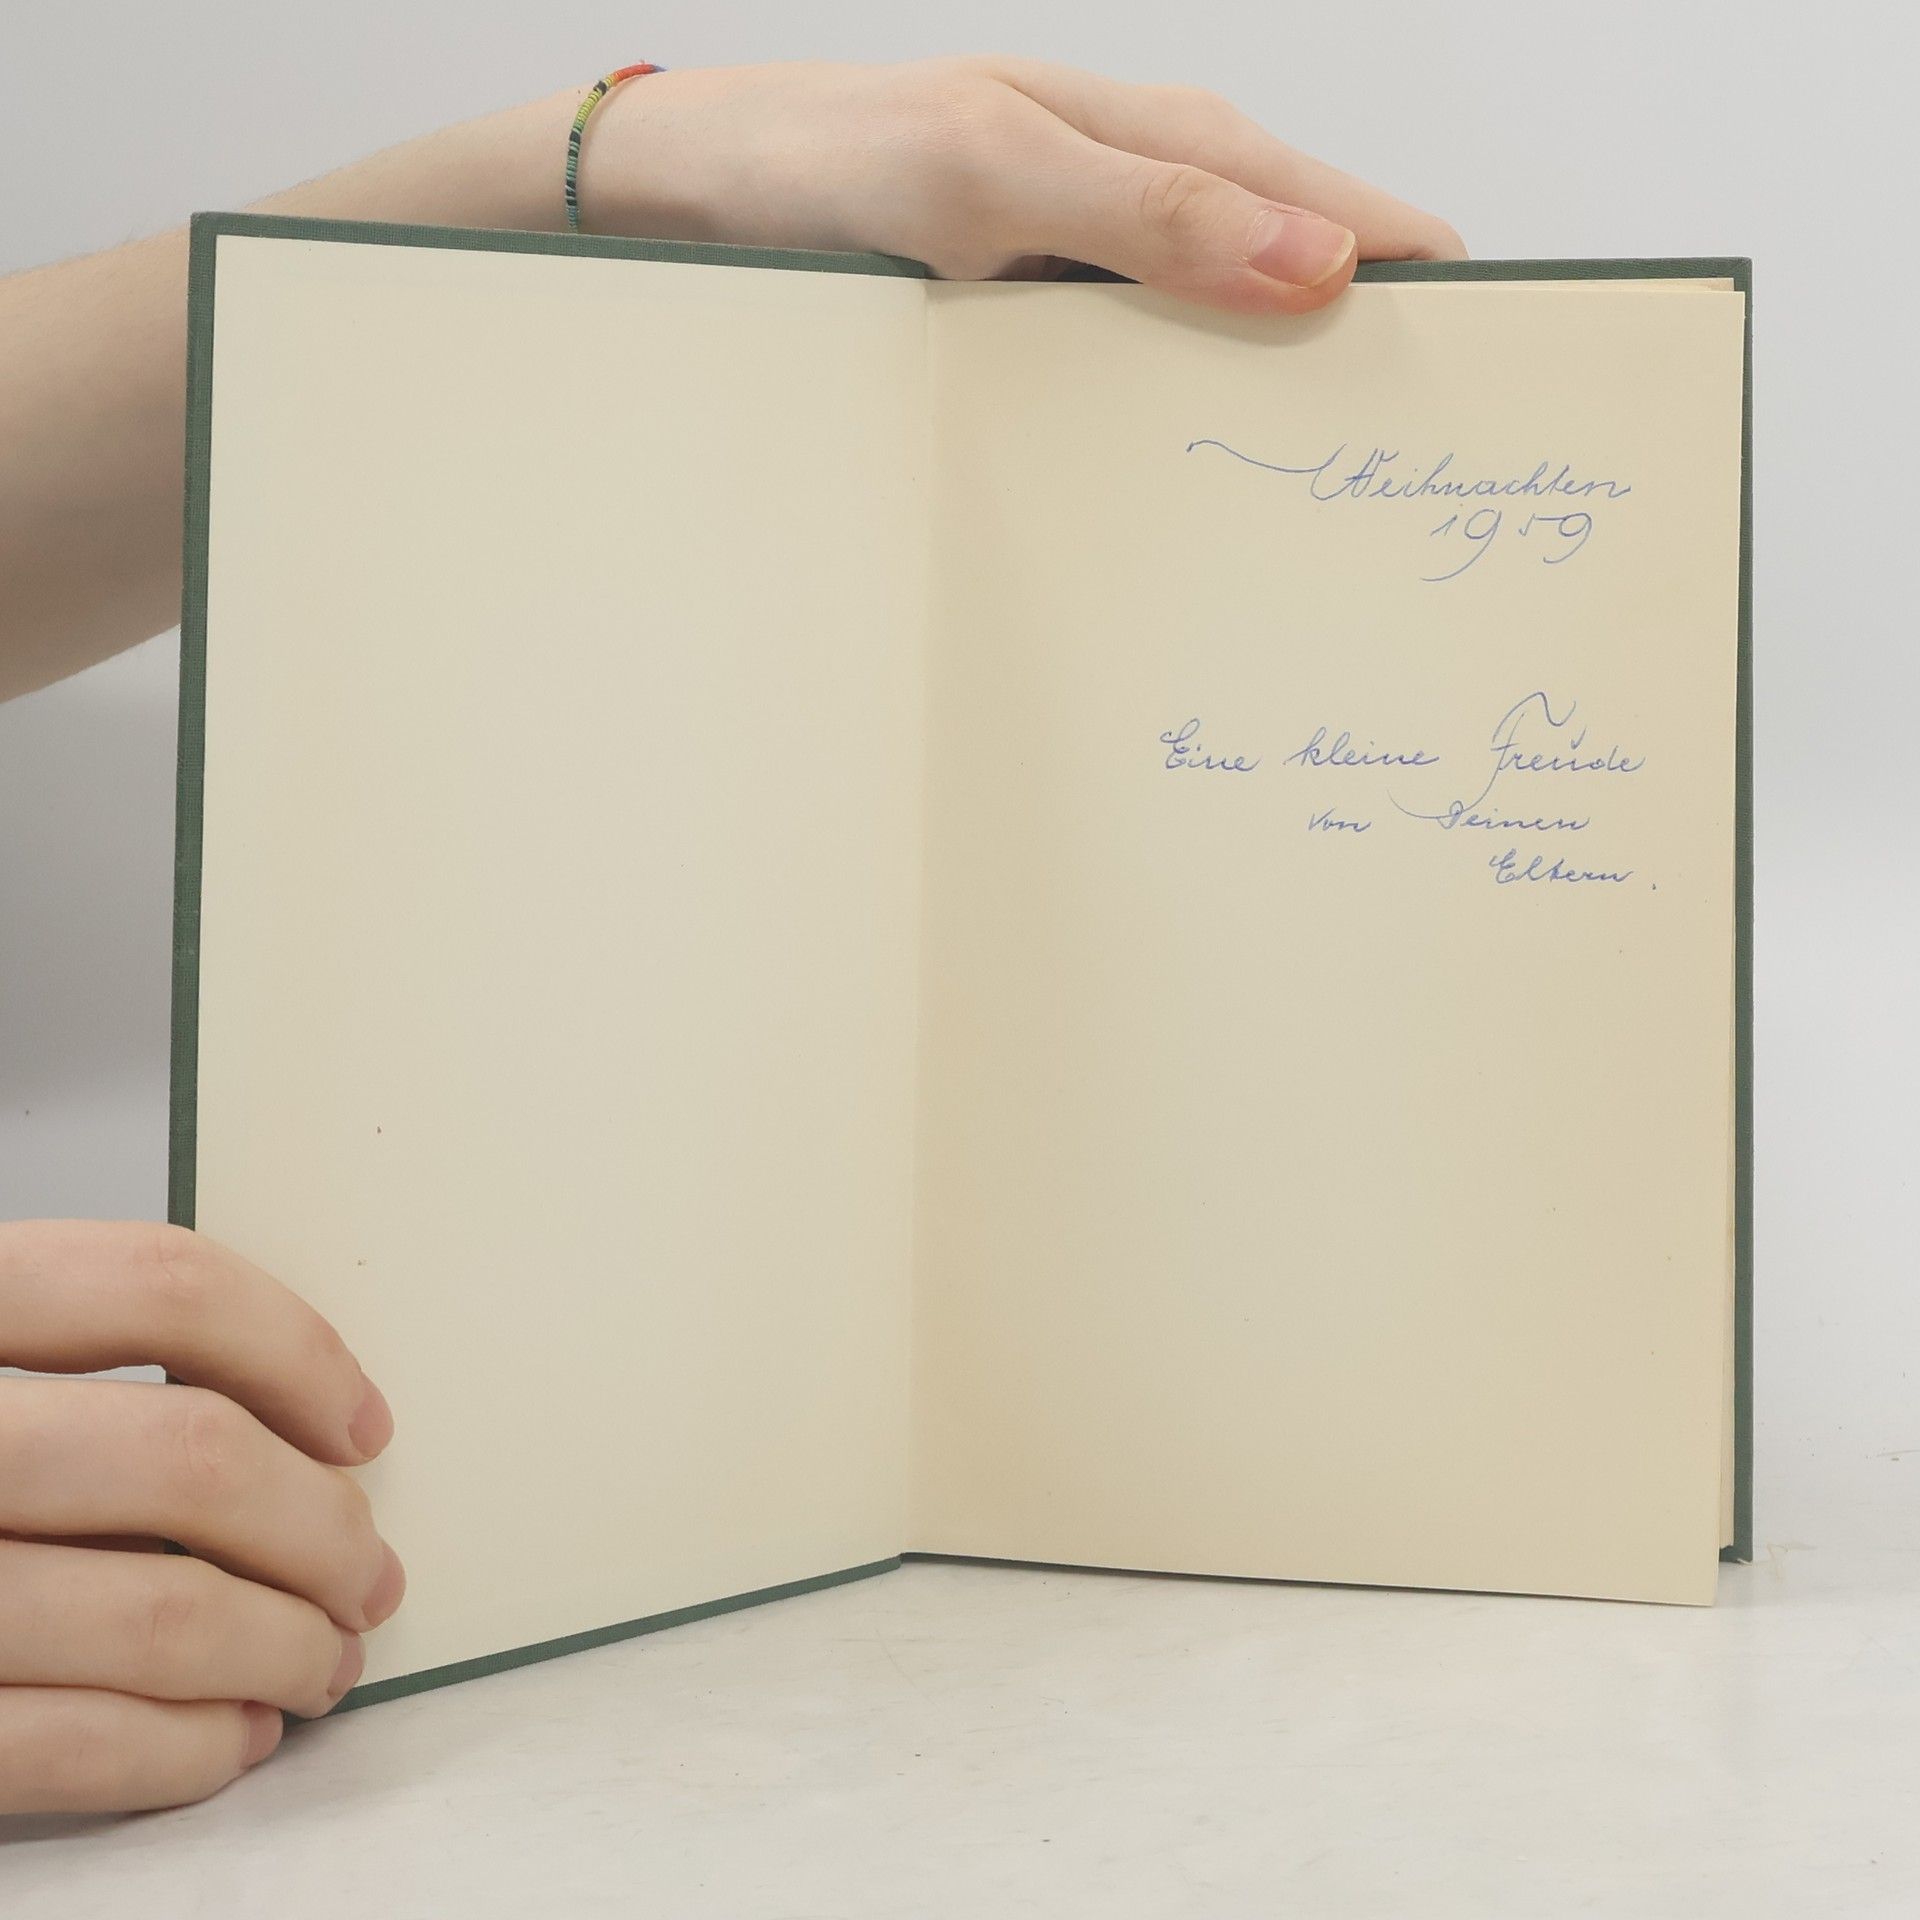 Weihnachten
1959
Eine kleine Freude
von Deinen
Eltern.